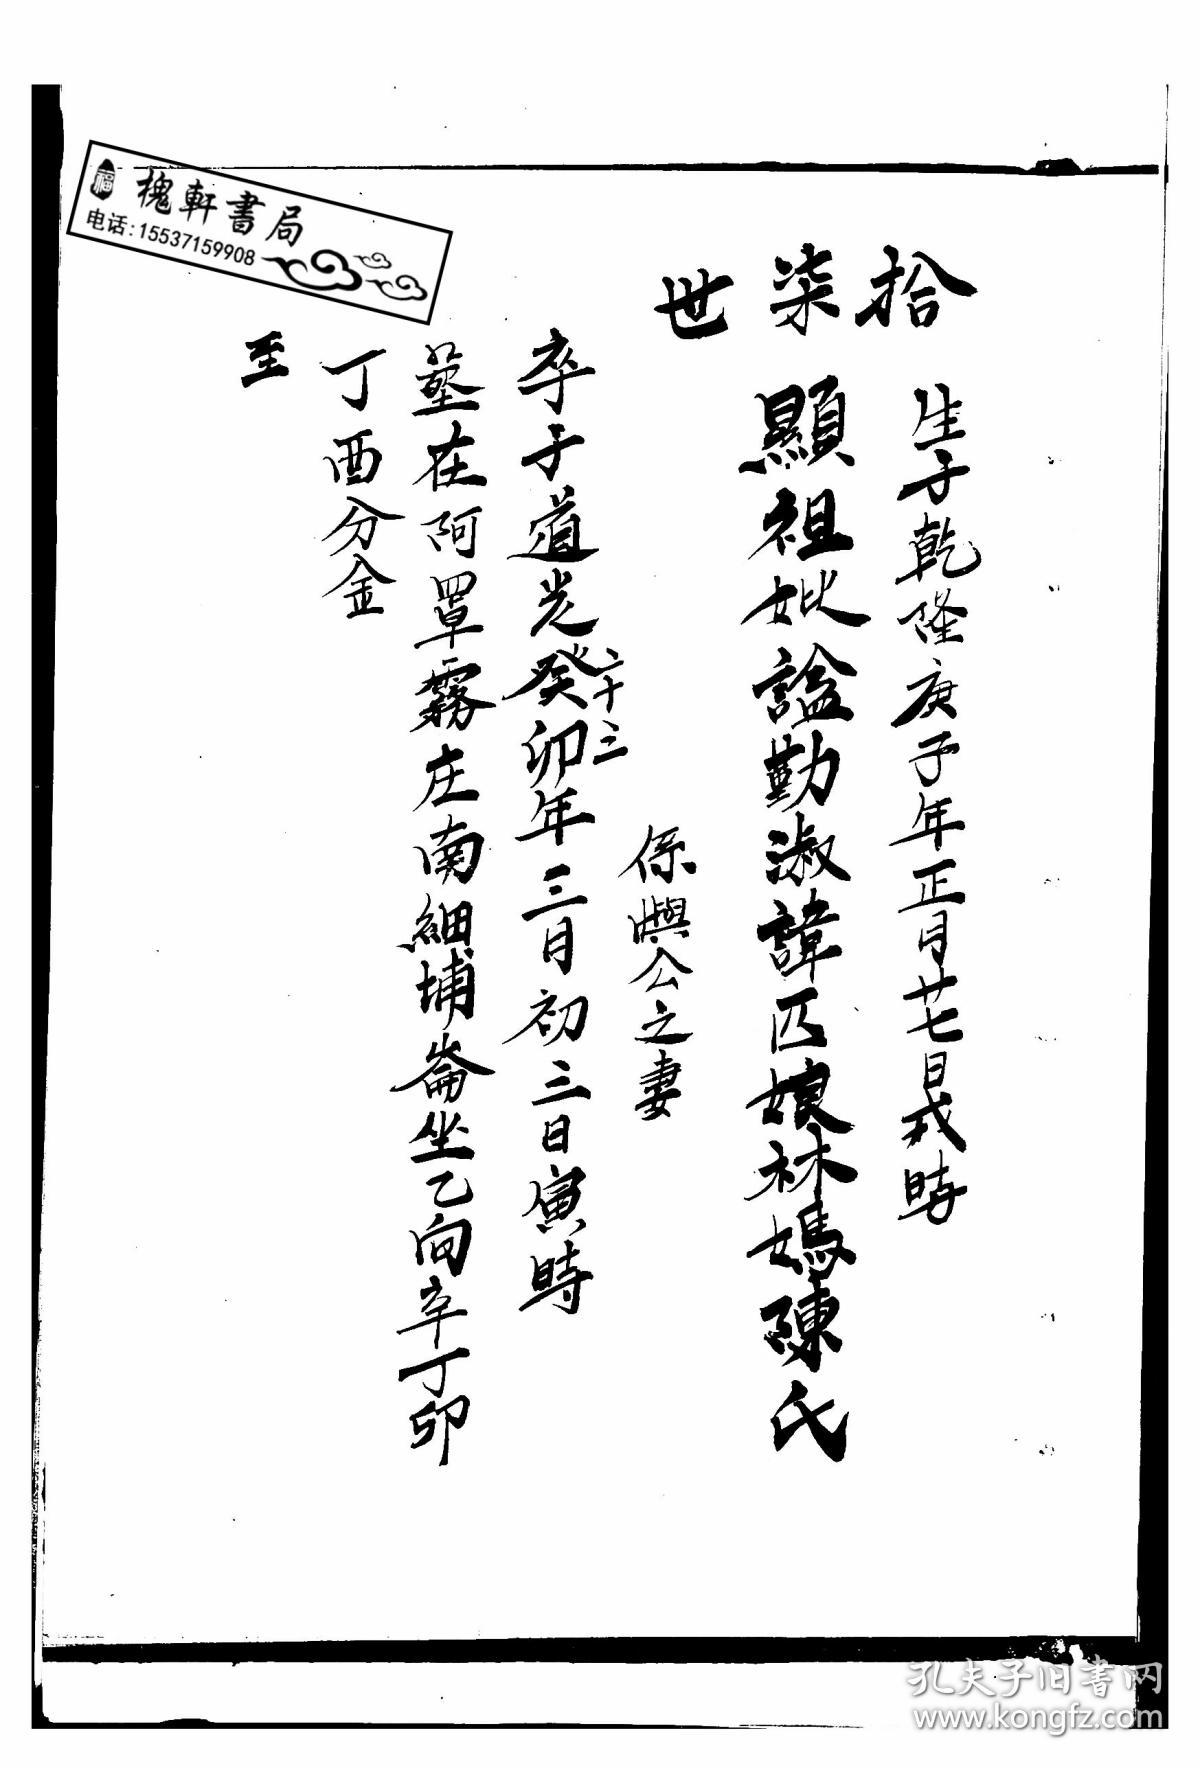 拾柒世
生于乾隆庚子年正月廿七日戌時
顯祖妣諡勤淑諱匹娘林媽陳氏
係嶼公之妻
二十三
卒于道光癸卯年三月初三日寅時
墓在阿罩霧庄南細埔崙坐乙向辛丁卯
丁酉分金
至
福
槐軒書局
电话:15537159908
孔夫子旧书网
www.kongfz.com